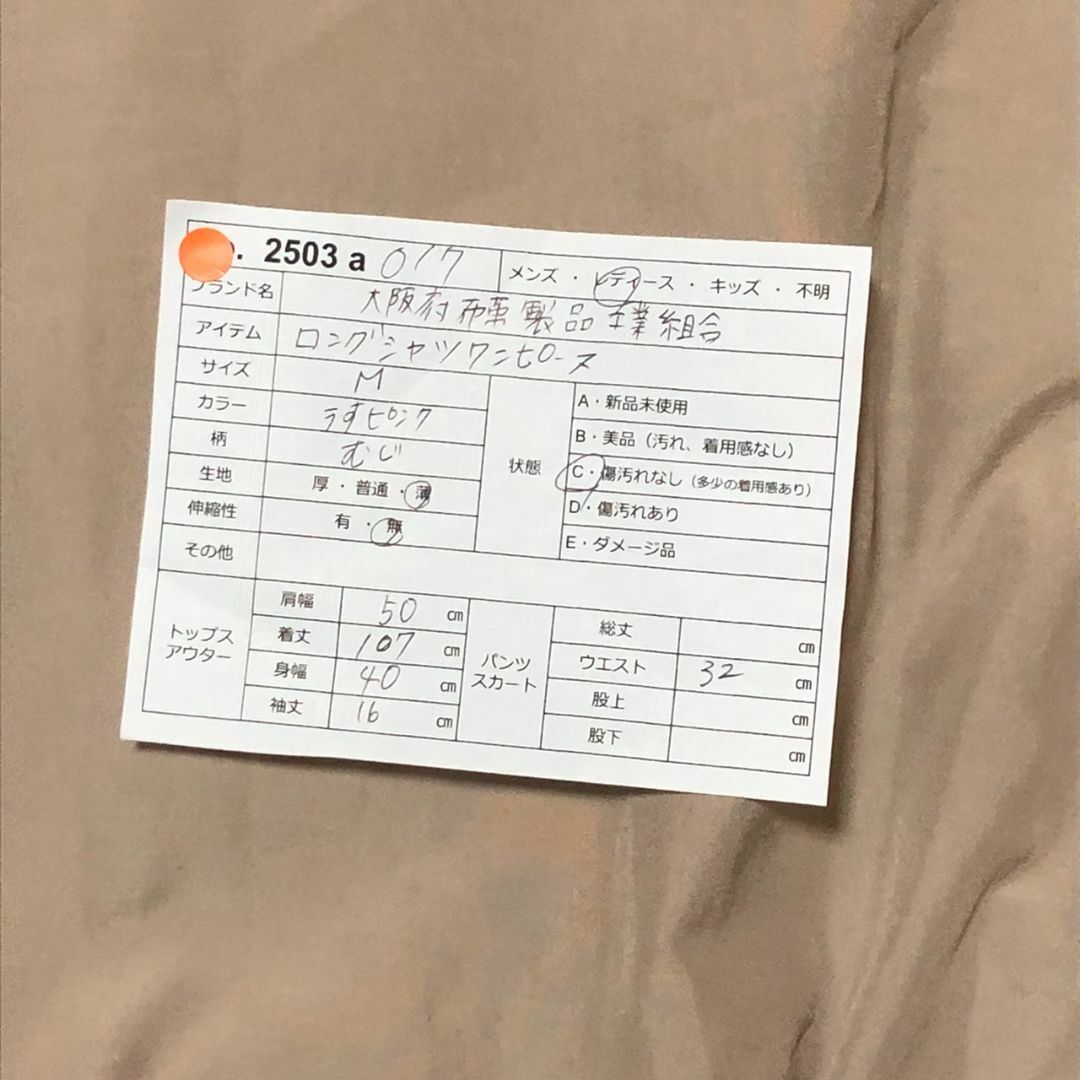 . 2503 a 017 メンズ ・ レディース ・ キッズ ・ 不明
ブランド名 大阪府 布帛 製品 工業 組合
アイテム ロングシャツワンピース
サイズ M
カラー うすピンク
柄 むじ
生地 厚 ・ 普通 ・ 薄
伸縮性 有 ・ 無
その他
状態
A・新品未使用
B・美品（汚れ、着用感なし）
C・傷汚れなし（多少の着用感あり）
D・傷汚れあり
E・ダメージ品
トップス
アウター
肩幅 50 cm
着丈 107 cm
身幅 40 cm
袖丈 16 cm
パンツ
スカート
総丈 cm
ウエスト 32 cm
股上 cm
股下 cm